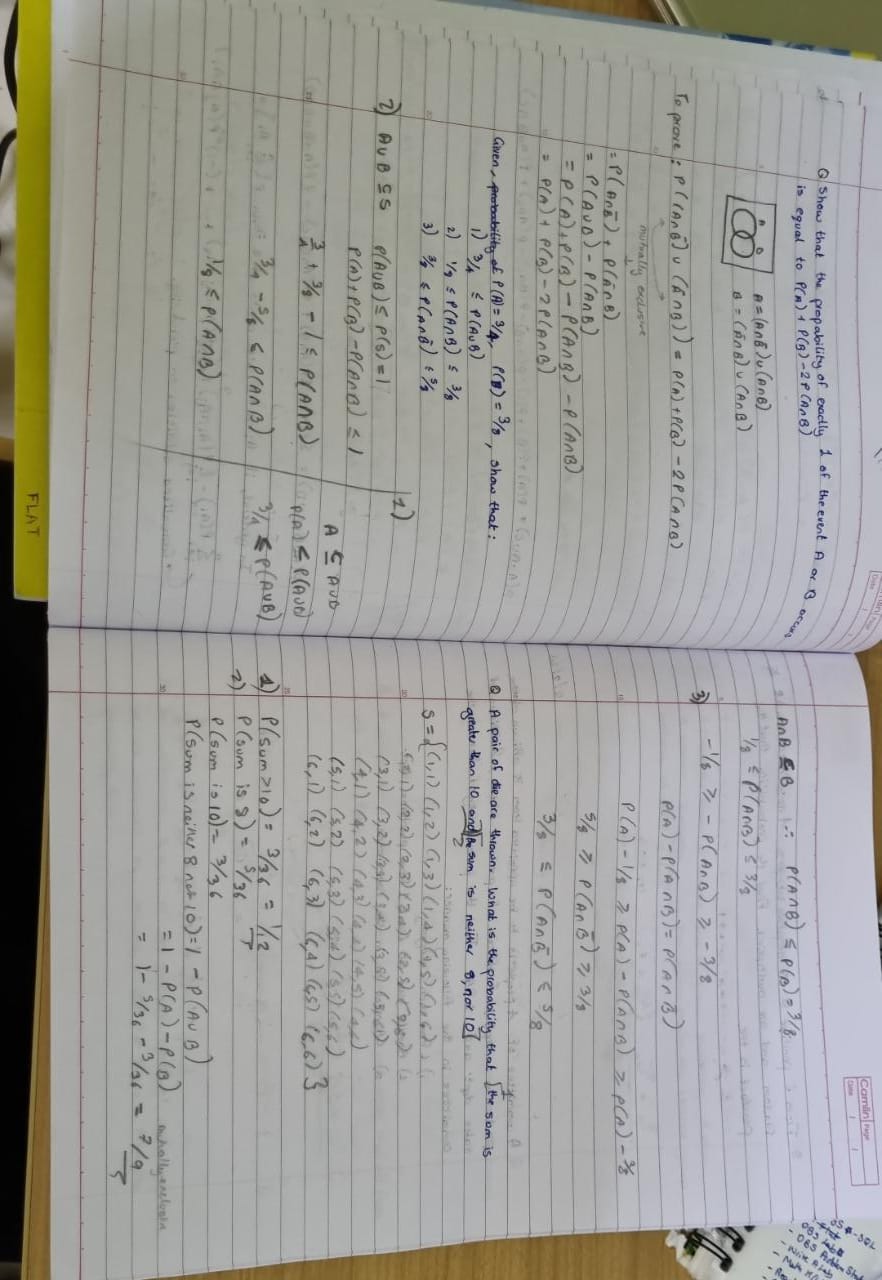 Q Show that the probability of exactly 1 of the event A or B occurs
is equal to P(A) + P(B) - 2P(A∩B)
A = (A∩B̄) ∪ (A∩B)
B = (Ā∩B) ∪ (A∩B)
To prove: P((A∩B̄) ∪ (Ā∩B)) = P(A) + P(B) - 2P(A∩B)
mutually exclusive
= P(A∩B̄) + P(Ā∩B)
= P(A∪B) - P(A∩B)
= P(A) + P(B) - P(A∩B) - P(A∩B)
= P(A) + P(B) - 2P(A∩B)
Given, probability of P(A) = 3/4, P(B) = 3/8, show that:
1) 3/4 ≤ P(A∪B)
2) 1/8 ≤ P(A∩B) ≤ 3/8
3) 3/8 ≤ P(A∩B̄) ≤ 5/8
2) A∪B ⊆ S P(A∪B) ≤ P(S) = 1
P(A) + P(B) - P(A∩B) ≤ 1
3/4 + 3/8 - 1 ≤ P(A∩B)
3/4 - 5/8 ≤ P(A∩B)
1/8 ≤ P(A∩B)
1)
A ⊆ A∪B
P(A) ≤ P(A∪B)
3/4 ≤ P(A∪B)
FLAT
Camlin Page
Date
A∩B ⊆ B ∴ P(A∩B) ≤ P(B) = 3/8
1/8 ≤ P(A∩B) ≤ 3/8
3) -1/8 ≥ -P(A∩B) ≥ -3/8
P(A) - P(A∩B) = P(A∩B̄)
P(A) - 1/8 ≥ P(A) - P(A∩B) ≥ P(A) - 3/8
5/8 ≥ P(A∩B̄) ≥ 3/8
3/8 ≤ P(A∩B̄) ≤ 5/8
Q A pair of die are thrown. What is the probability that 1 the sum is
greater than 10 and 2 the sum is neither 8, nor 10
S = {(1,1) (1,2) (1,3) (1,4) (1,5) (1,6)
(2,1) (2,2) (2,3) (2,4) (2,5) (2,6)
(3,1) (3,2) (3,3) (3,4) (3,5) (3,6)
(4,1) (4,2) (4,3) (4,4) (4,5) (4,6)
(5,1) (5,2) (5,3) (5,4) (5,5) (5,6)
(6,1) (6,2) (6,3) (6,4) (6,5) (6,6)}
1) P(sum>10) = 3/36 = 1/12
2) P(sum is 8) = 5/36
P(sum is 10) = 3/36
P(sum is neither 8 not 10) = 1 - P(A∪B)
= 1 - P(A) - P(B) mutually exclusive
= 1 - 5/36 - 3/36 = 7/9